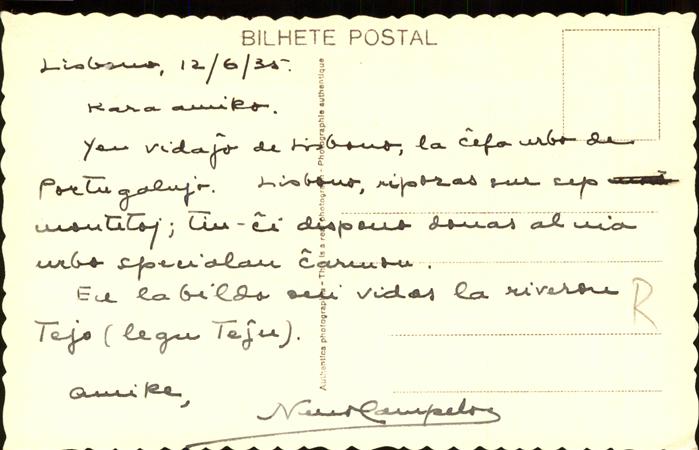 BILHETE POSTAL
Lisbono, 12/6/35.
Kara amiko.
Yen vidaĵo de Lisbono, la ĉefa urbo de
Portugalujo. Lisbono, ripozas sur sep
montetoj; tiu-ĉi dispono donas al nia
urbo specialan ĉarmon.
En la bildo oni vidas la riveron
Tejo (legu Teĵu).
R
amike,
Authentica photographia - This is a real photograph - Photographie authentique